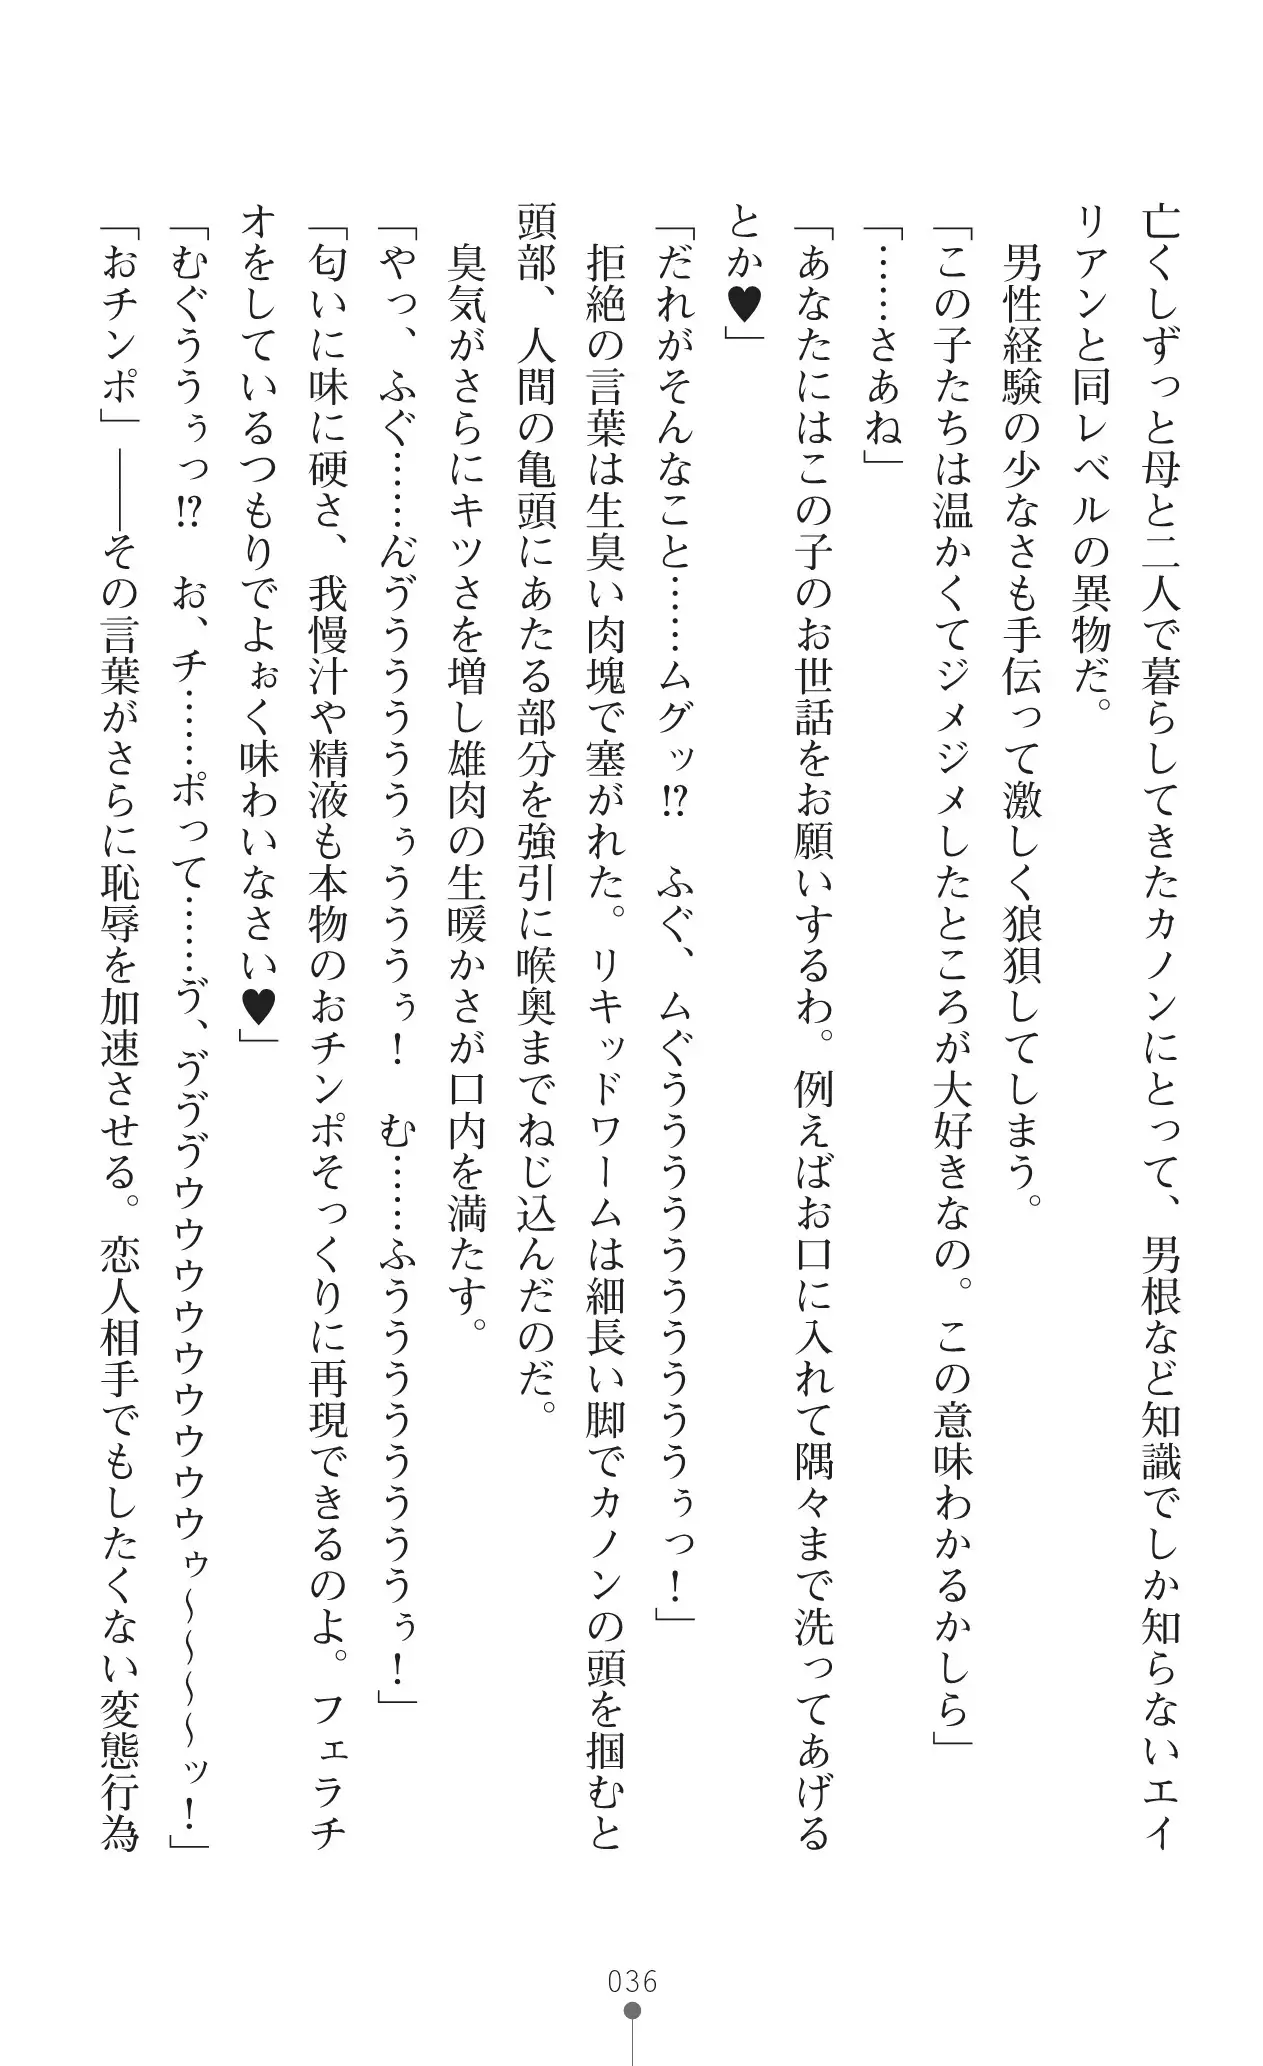 亡くしずっと母と二人で暮らしてきたカノンにとって、男根など知識でしか知らないエイ
リアンと同レベルの異物だ。
男性経験の少なさも手伝って激しく狼狽してしまう。
「この子たちは温かくてジメジメしたところが大好きなの。この意味わかるかしら」
「……さあね」
「あなたにはこの子のお世話をお願いするわ。例えばお口に入れて隅々まで洗ってあげる
とか♥」
「だれがそんなこと……ムグッ!?　ふぐ、ムぐうううううううううぅっ！」
拒絶の言葉は生臭い肉塊で塞がれた。リキッドワームは細長い脚でカノンの頭を掴むと
頭部、人間の亀頭にあたる部分を強引に喉奥までねじ込んだのだ。
臭気がさらにキツさを増し雄肉の生暖かさが口内を満たす。
「やっ、ふぐ……ん゛う゛ううううぅうううぅ！　む……ふううううううううぅ！」
「匂いに味に硬さ、我慢汁や精液も本物のおチンポそっくりに再現できるのよ。フェラチ
オをしているつもりでよぉく味わいなさい♥」
「むぐううぅっ!?　お、チ……ポって……う゛、う゛う゛う゛ウウウウウウウウウゥ～～～～ッ！」
「おチンポ」――その言葉がさらに恥辱を加速させる。恋人相手でもしたくない変態行為
036